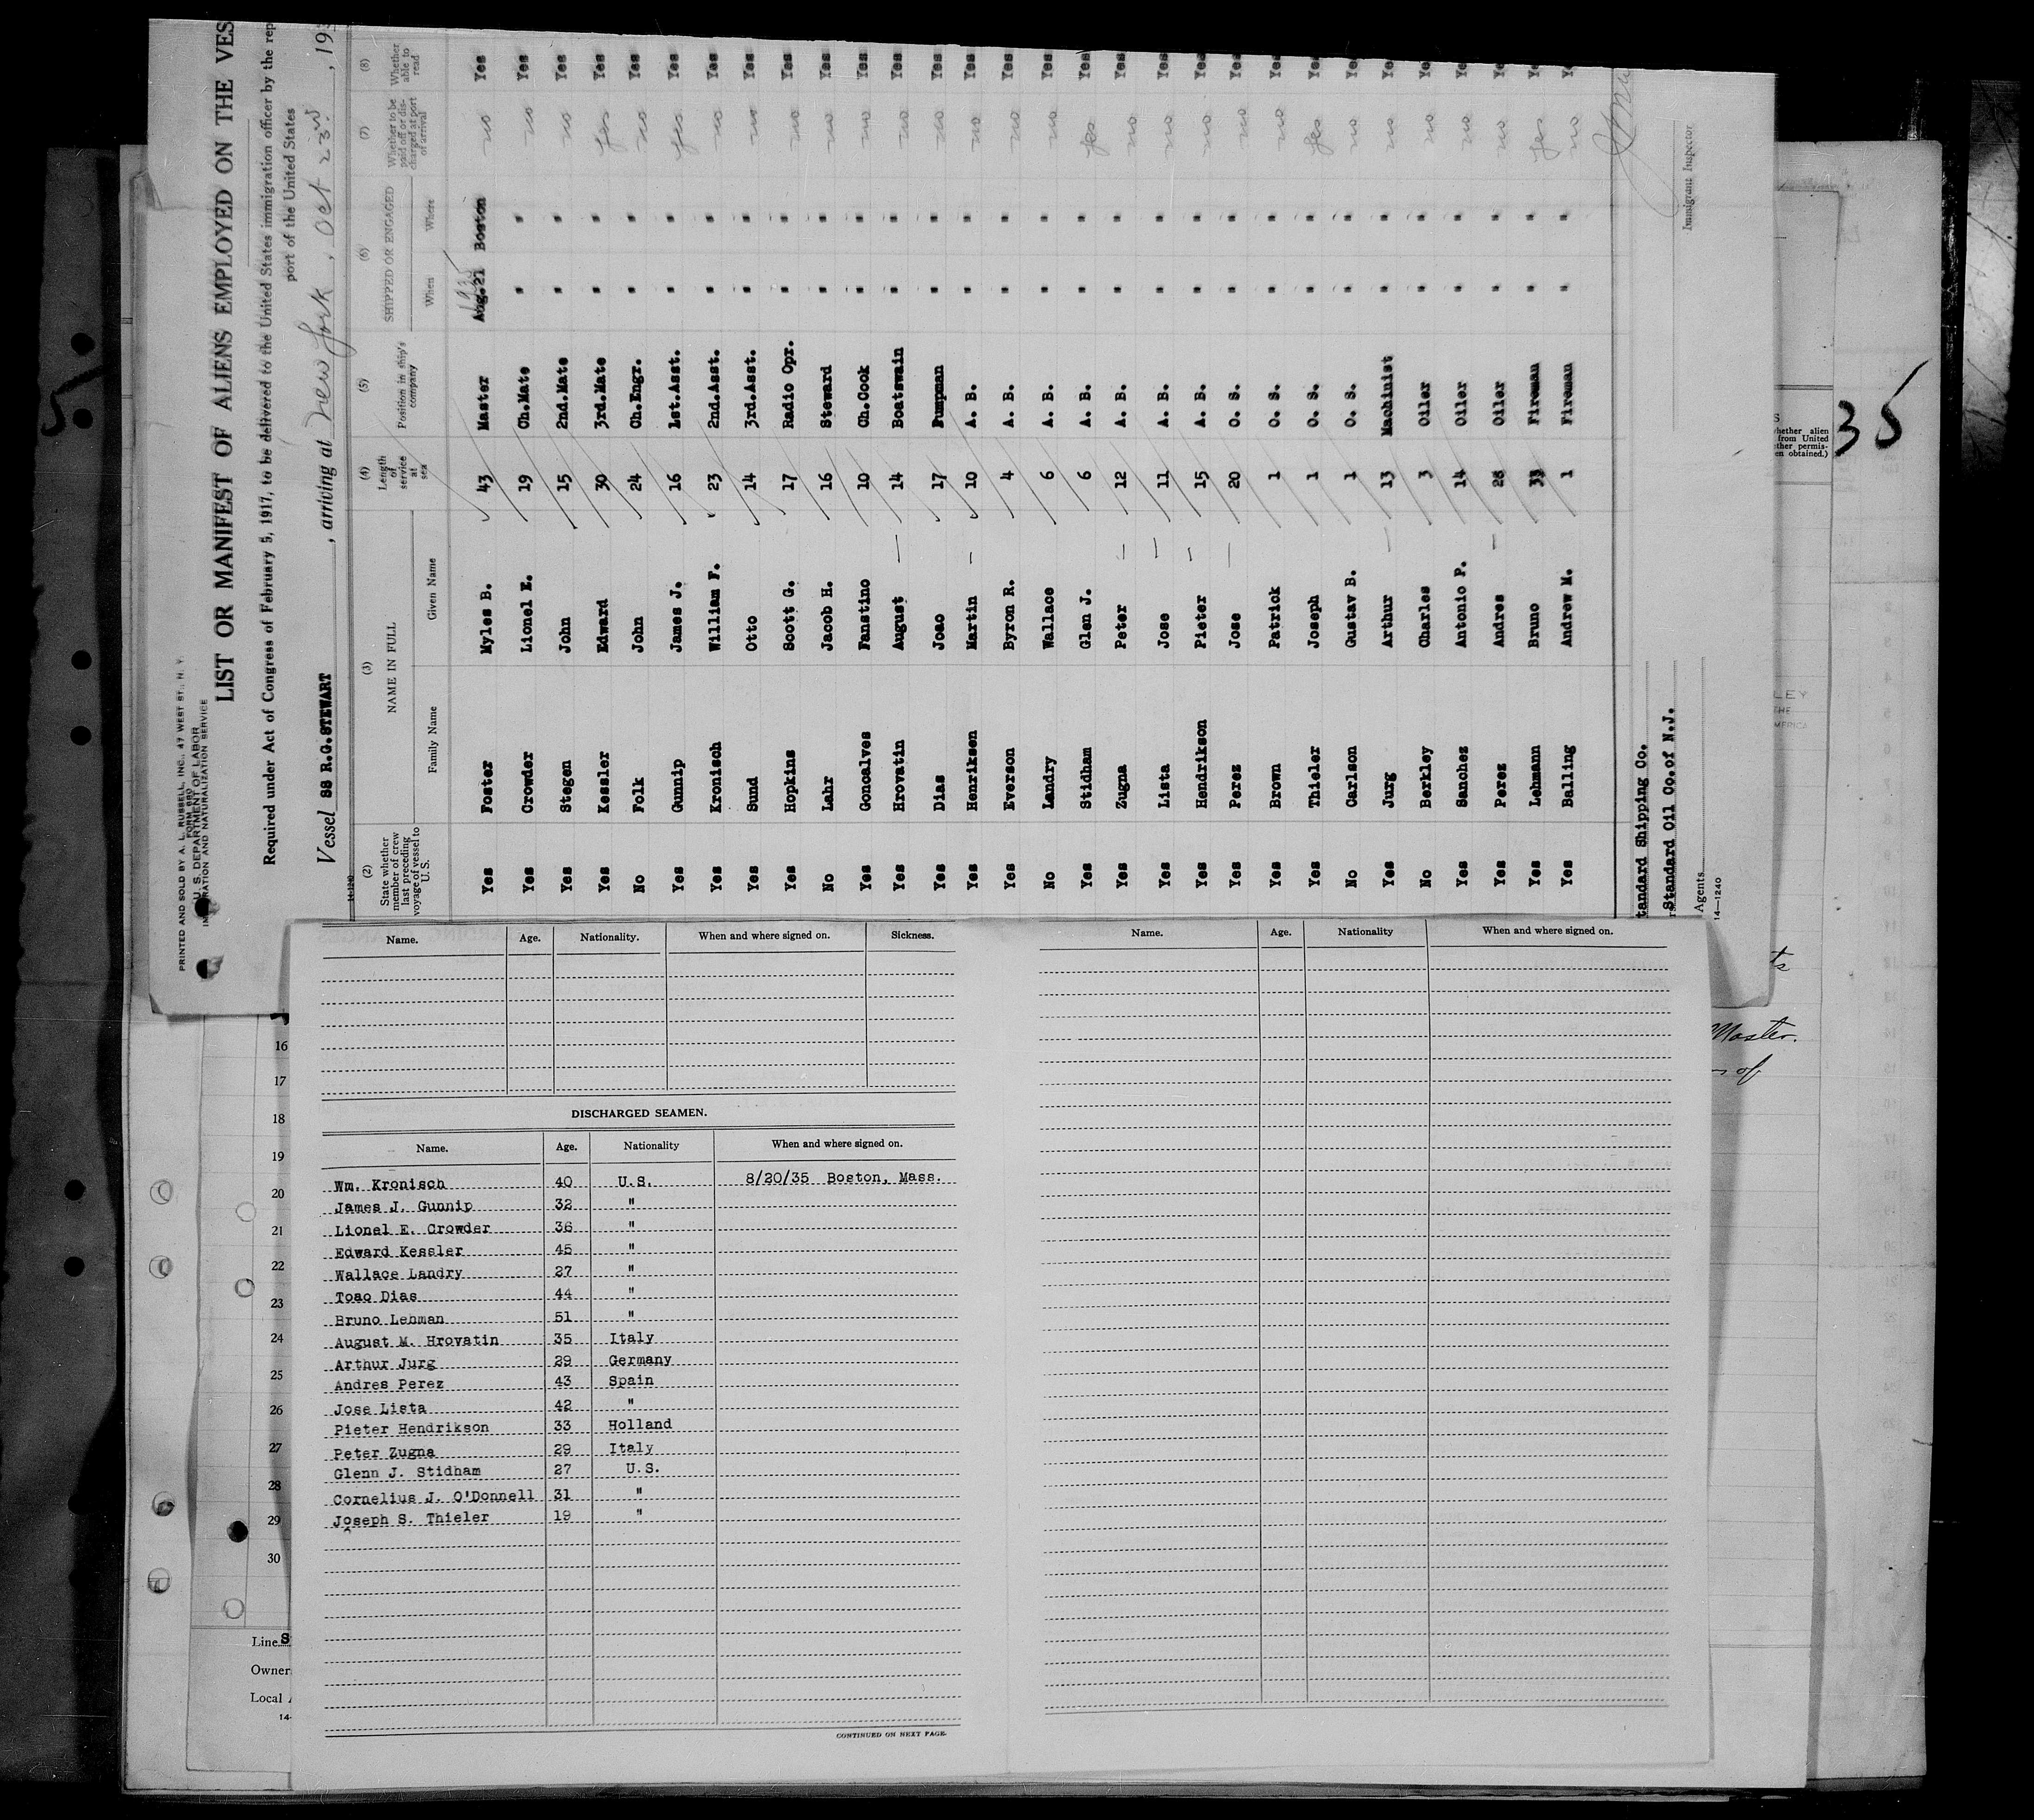 PRINTED AND SOLD BY A. L. RUSSELL, INC., 47 WEST ST., N. Y.
FORM 680
U. S. DEPARTMENT OF LABOR
IMMIGRATION AND NATURALIZATION SERVICE
LIST OR MANIFEST OF ALIENS EMPLOYED ON THE VES
Required under Act of Congress of February 5, 1917, to be delivered to the United States immigration officer by the rep
port of the United States
Vessel SS R.G.STEWART , arriving at New York , Oct 23rd , 193
(2) (3) (4) (5) (6) (7) (8)
State whether member of crew last preceding voyage of vessel to U. S. NAME IN FULL Length of service at sea Position in ship's company SHIPPED OR ENGAGED Whether to be paid off or discharged at port of arrival Whether able to read
Family Name Given Name When Where
1935
Yes Foster Myles B. 43 Master Aug.21 Boston no Yes
Yes Crowder Lionel E. 19 Ch.Mate " " no Yes
Yes Stegen John 15 2nd.Mate " " no Yes
Yes Kessler Edward 30 3rd.Mate " " yes Yes
No Folk John 24 Ch.Engr. " " no Yes
Yes Gunnip James J. 16 1st.Asst. " " yes Yes
Yes Kronisch William F. 23 2nd.Asst. " " no Yes
Yes Sund Otto 14 3rd.Asst. " " no Yes
Yes Hopkins Scott G. 17 Radio Opr. " " no Yes
No Lahr Jacob H. 16 Steward " " no Yes
Yes Goncalves Fanstino 10 Ch.Cook " " no Yes
Yes Hrovatin August 14 Boatswain " " no Yes
Yes Dias Joao 17 Pumpman " " no Yes
Yes Henriksen Martin 10 A. B. " " no Yes
Yes Everson Byron R. 4 A. B. " " no Yes
No Landry Wallace 6 A. B. " " no Yes
Yes Stidham Glen J. 6 A. B. " " yes Yes
Yes Zugna Peter 12 A. B. " " no Yes
Yes Lista Jose 11 A. B. " " no Yes
Yes Hendrikson Pieter 15 A. B. " " no Yes
Yes Perez Jose 20 O. S. " " no Yes
Yes Brown Patrick 1 O. S. " " no Yes
Yes Thieler Joseph 1 O. S. " " yes Yes
No Carlson Gustav B. 1 O. S. " " no Yes
Yes Jurg Arthur 13 Machinist " " no Yes
No Berkley Charles 3 Oiler " " no Yes
Yes Sanchez Antonio P. 14 Oiler " " no Yes
Yes Perez Andres 28 Oiler " " no Yes
Yes Lehmann Bruno 33 Fireman " " yes Ye
Yes Balling Andrew M. 1 Fireman " " no Ye
tandard Shipping Co.
Standard Oil Co.of N.J.
Immigrant Inspector
Agents
14—1240
35
5
hether alien
from United
ther permis-
en obtained.)
LEY
THE
MERICA
ts
Master.
of
Name. Age. Nationality. When and where signed on. Sickness.
DISCHARGED SEAMEN.
Name. Age. Nationality When and where signed on.
Wm. Kronisch 40 U.S. 8/20/35 Boston, Mass.
James J. Gunnip 32 "
Lionel E. Crowder 36 "
Edward Kessler 45 "
Wallace Landry 27 "
Toao Dias 44 "
Bruno Lehman 51 "
August M. Hrovatin 35 Italy
Arthur Jurg 29 Germany
Andres Perez 43 Spain
Jose Lista 42 "
Pieter Hendrikson 33 Holland
Peter Zugna 29 Italy
Glenn J. Stidham 27 U.S.
Cornelius J. O'Donnell 31 "
Joseph S. Thieler 19 "
CONTINUED ON NEXT PAGE.
Name. Age. Nationality When and where signed on.
16
17
18
19
20
21
22
23
24
25
26
27
28
29
30
Line S
Owner
Local
14-